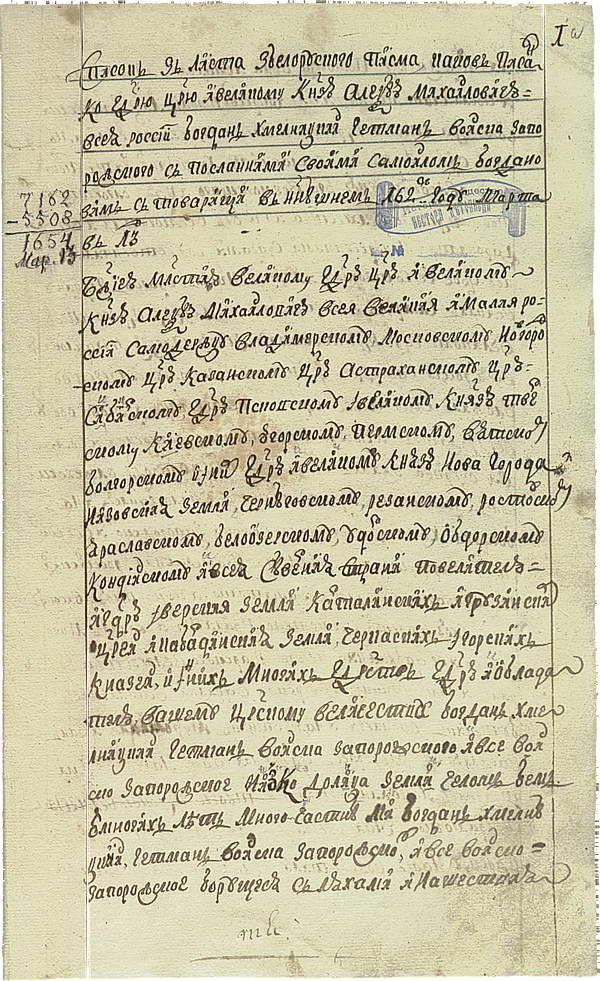 1а
Списокъ зъ листа з белоруского писма каковъ писа
ко гдрю црю і великому кнзю Алеѯѣю Михайловичю
всея росиї богданъ хмелницкий гетманъ войска запо
рожского съ посланниками своими самойломъ богдано
вимъ съ товарищи въ нинѣшнемъ 162 году марта
7162
-5508
1654
Мар. 13
въ
Бжиею млстию великому гдрю црю і великому
кнзю Алеѯѣю Михайловичю всея великия и малая ро-
ссиї самодержцу владимерскому московскому новгоро
цкому црю казанскому црю астраханскому црю
сибирскому гдрю псковскому і великому князю твѣ
скому, югорскому, пермскому, вятско
болгорскому гдрю і великому князю нова города
низовския земли, резанскому, ростовско
ярославскому, белоозерскому, удорскому, обдорскому
кондийскому и всея сѣверния страни повелителю
и гдрю иверския земли карталинскихъ и грузински
црей и кабардинския земли, черкаскихъ і горскихъ
князей, и иних многихъ гдрствъ гдрю і облада
телю, вашему црскому величеству богданъ хме
лницкий гетманъ войска запорожского и все вой
ско запорожское низко до лица земли челомъ бемъ
многихъ лѣтъ ми богданъ хмелни
цкий, гетманъ войска запорозско, и все войско
запорозское борущеся съ ляхами и нашествия